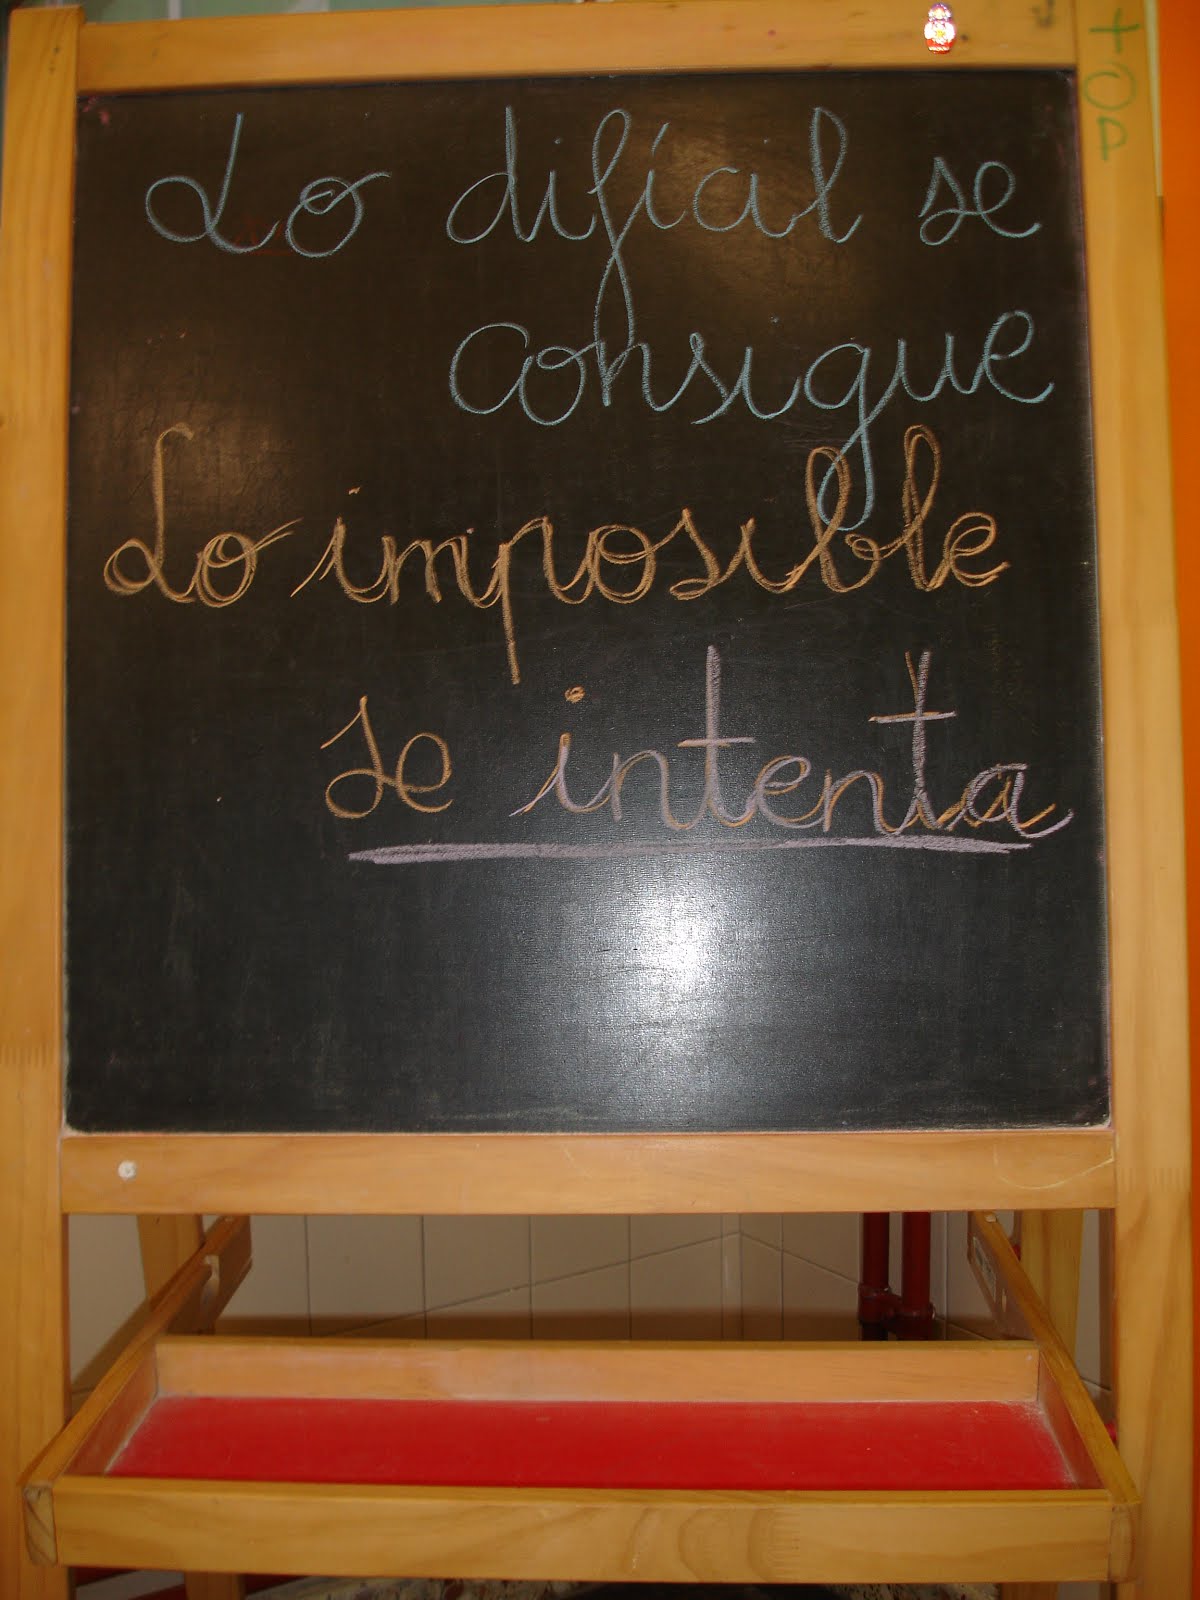 Lo difícil se
consigue
Lo imposible
se intenta